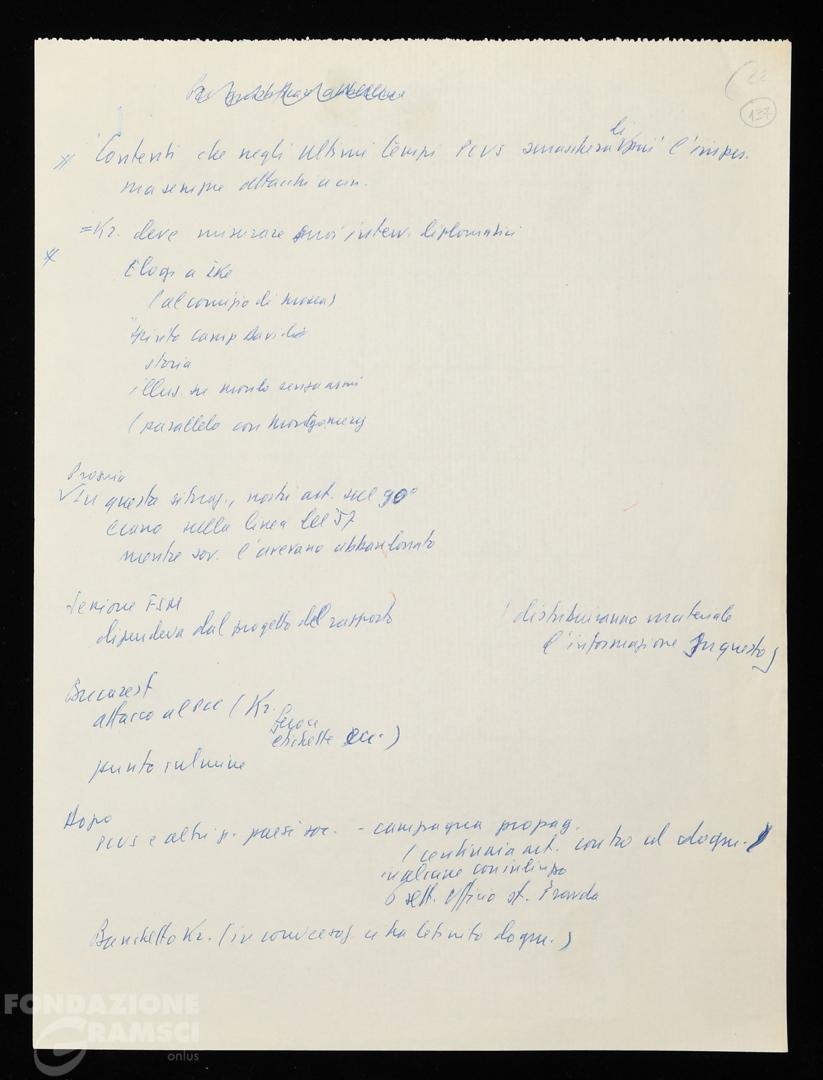 22
137
Contenti che negli ultimi tempi PCUS smaschera l'imper.
ma sempre attacchi a cin.
= Kr. deve misurare suoi interv. diplomatici
Elogi a Ike
(al comizio di Mosca)
Spirito Camp David
storia
illus. su mondo senza armi
(parallelo con Montgomery)
Prassia
In questa situaz., nostri art. sul 90°
erano sulla linea del 57
mentre sov. l'avevano abbandonato
Sessione FSM
dipendeva dal progetto del rapporto
distribuiranno materiale
d'informazione su questo)
Bucarest
attacco al PCC (Kr.
etichette ecc.)
punto culmine
Dopo
PCUS e altri p. paesi soc. - campagna propag.
(centinaia art. contro il dogm.)
6 sett. ufficio st. Pravda
Banchetto Kr. (in conversaz. ci ha definito dogm.)
FONDAZIONE
GRAMSCI
onlus